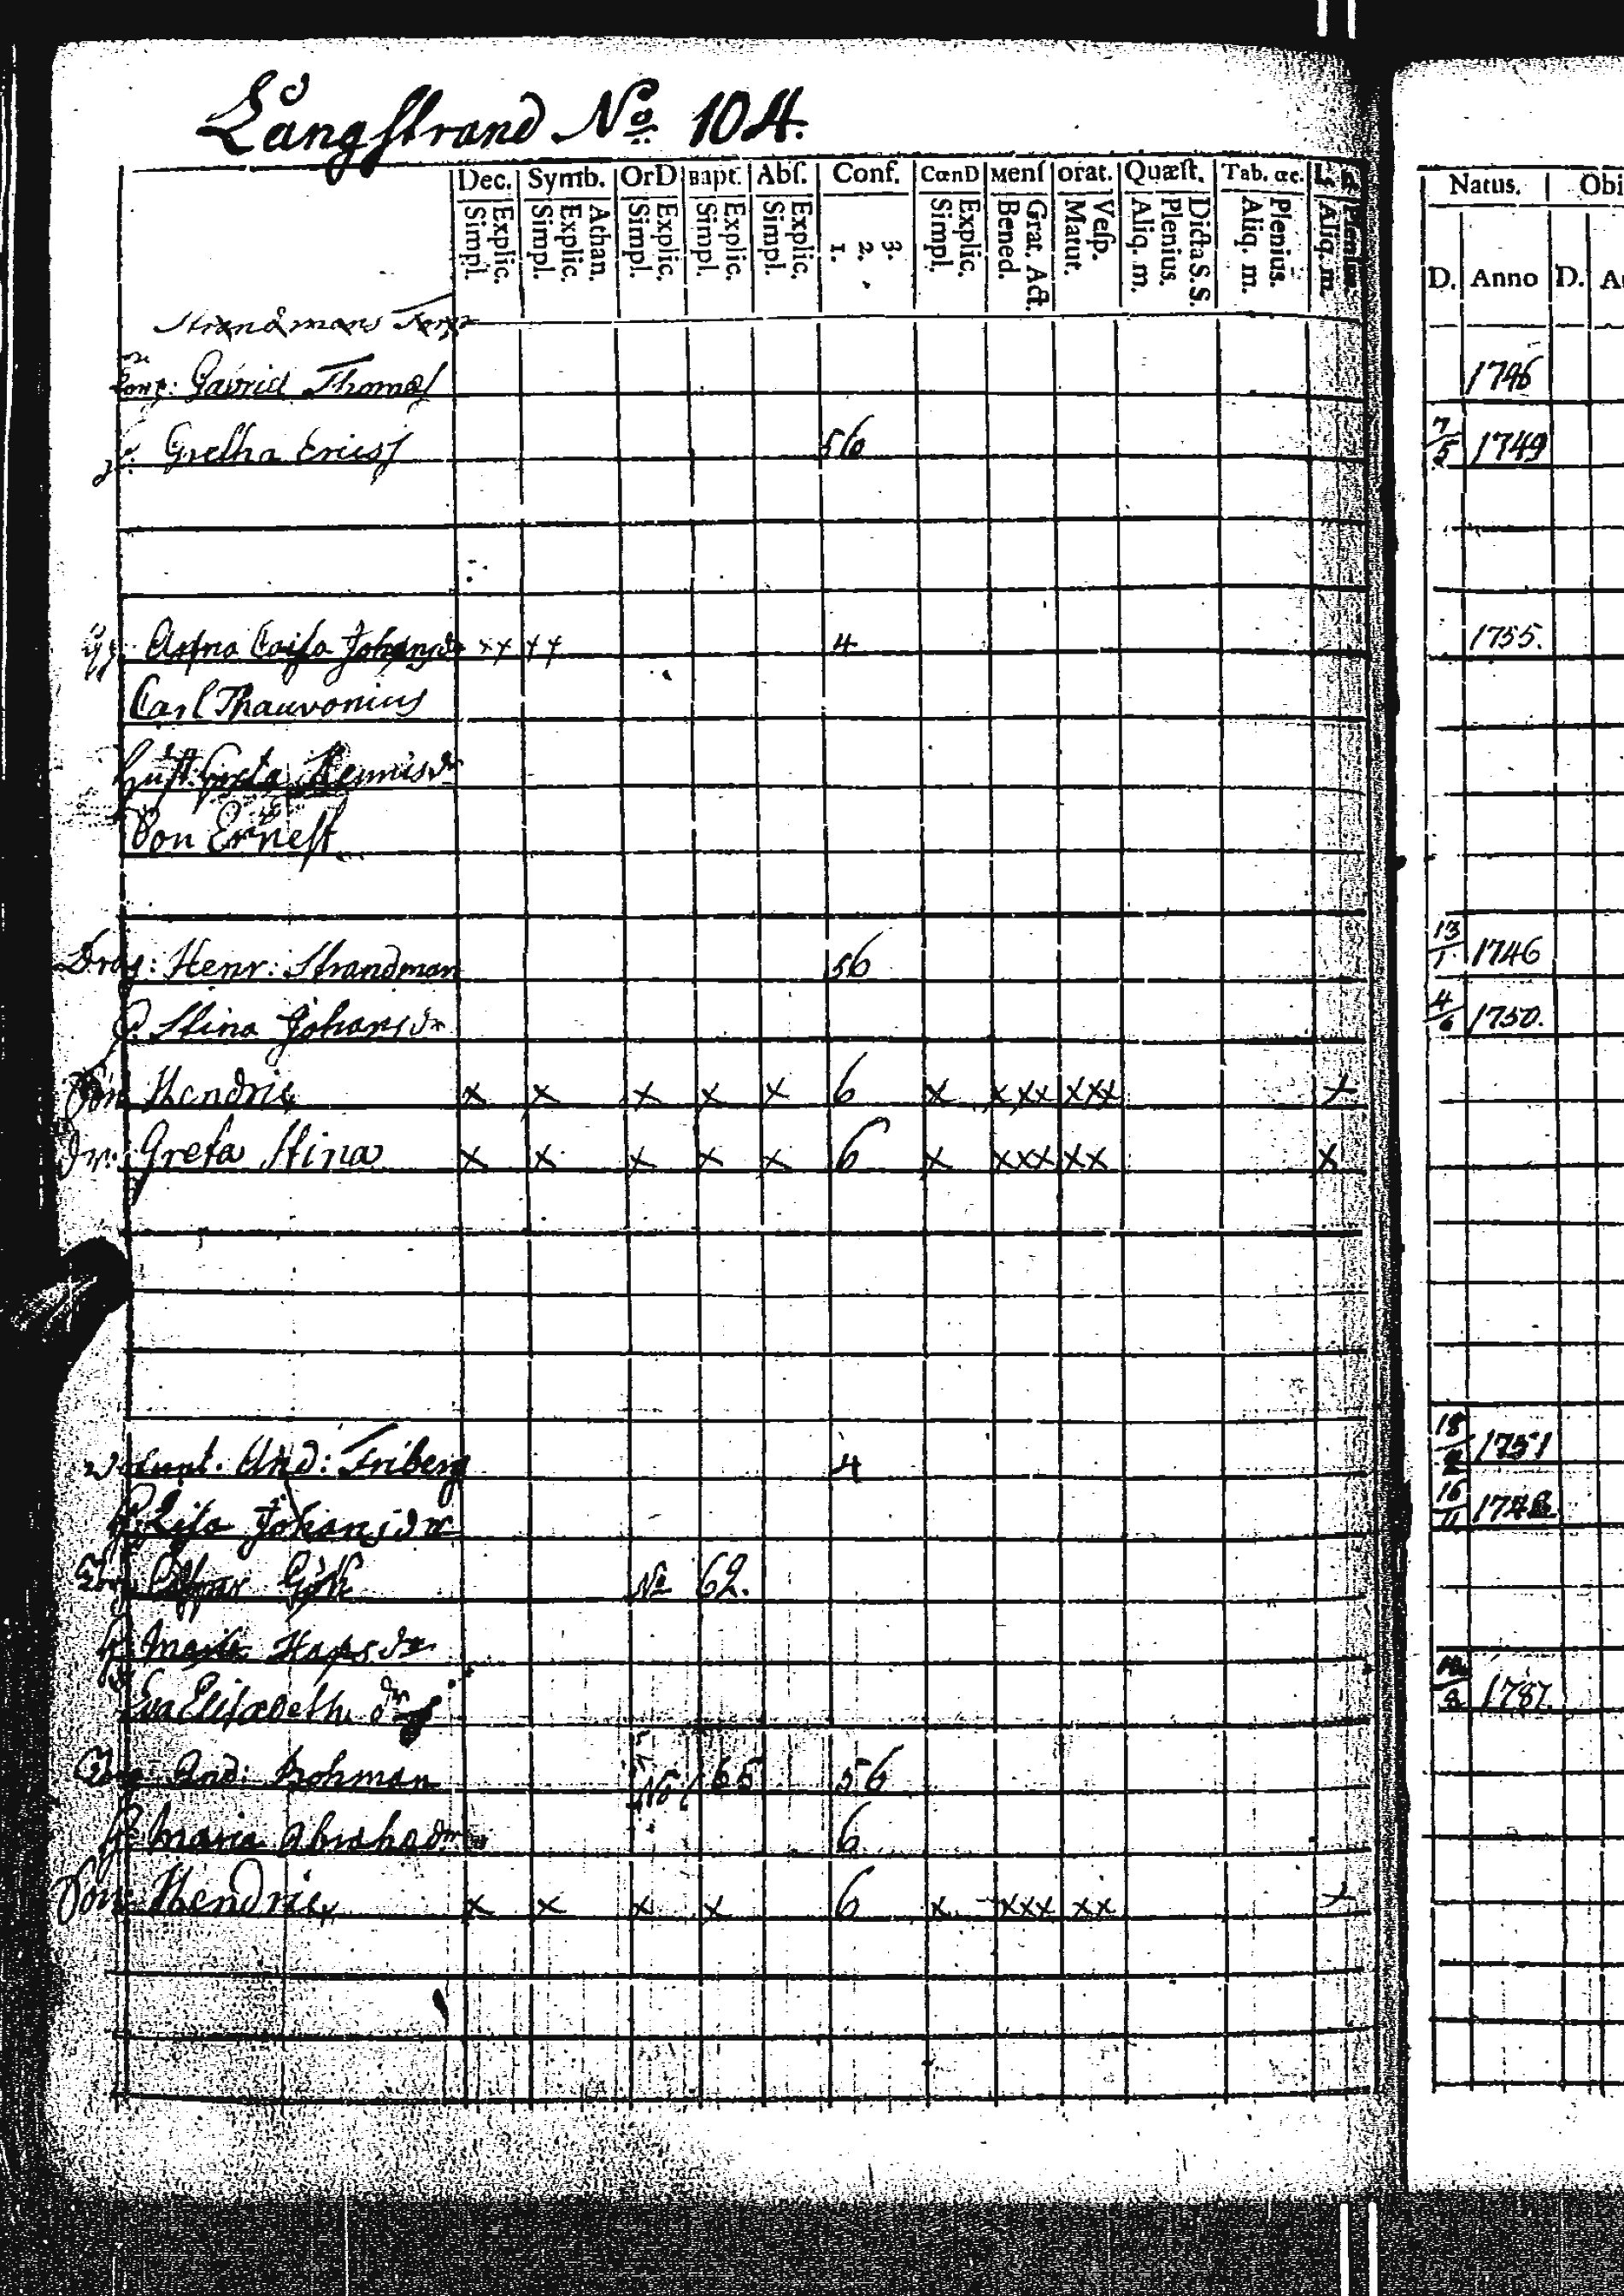 Långstrand No 104.
Dec. Symb. OrD Bapt. Abſ. Conf. CœnD Menſ orat. Quæſt. Tab. œc. Natus. Obi
Simpl. Explic. Simpl. Explic. Athan. Simpl. Explic. Simpl. Explic. Simpl. Explic. 1. 2. 3. Simpl. Explic. Bened. Grat. Act. Matut. Veſp. Aliq. m. Plenius. Dicta S. S. Aliq. m. Plenius. Aliq. m. Plenius. D. Anno D.
Strandmans Torp
Gavriel Thomas 1746
Gretha Ericsf 56 7/5 1749
Caisa Johansdr xx xx 4 1755.
Carl Thauvonius
Hust: Greta
Son Ernest
Drag: Henr: Strandman 56 13/1 1746
H. Stina Johansdr 4/6 1750.
Son Hendric x x x x x 6 x x xx xxx x
Dr: Greta Stina x x x x x 6 x xxx xx x
And: Friberg 4 18/2 1751
H. Lisa Johansdr 16/11
No 62.
H. Maria
Eva Elisabeth dr 1787
And: Bohman No 65 56
H. Maria Abrahadr 6
Son Hendric x x x x 6 x xxx xx x